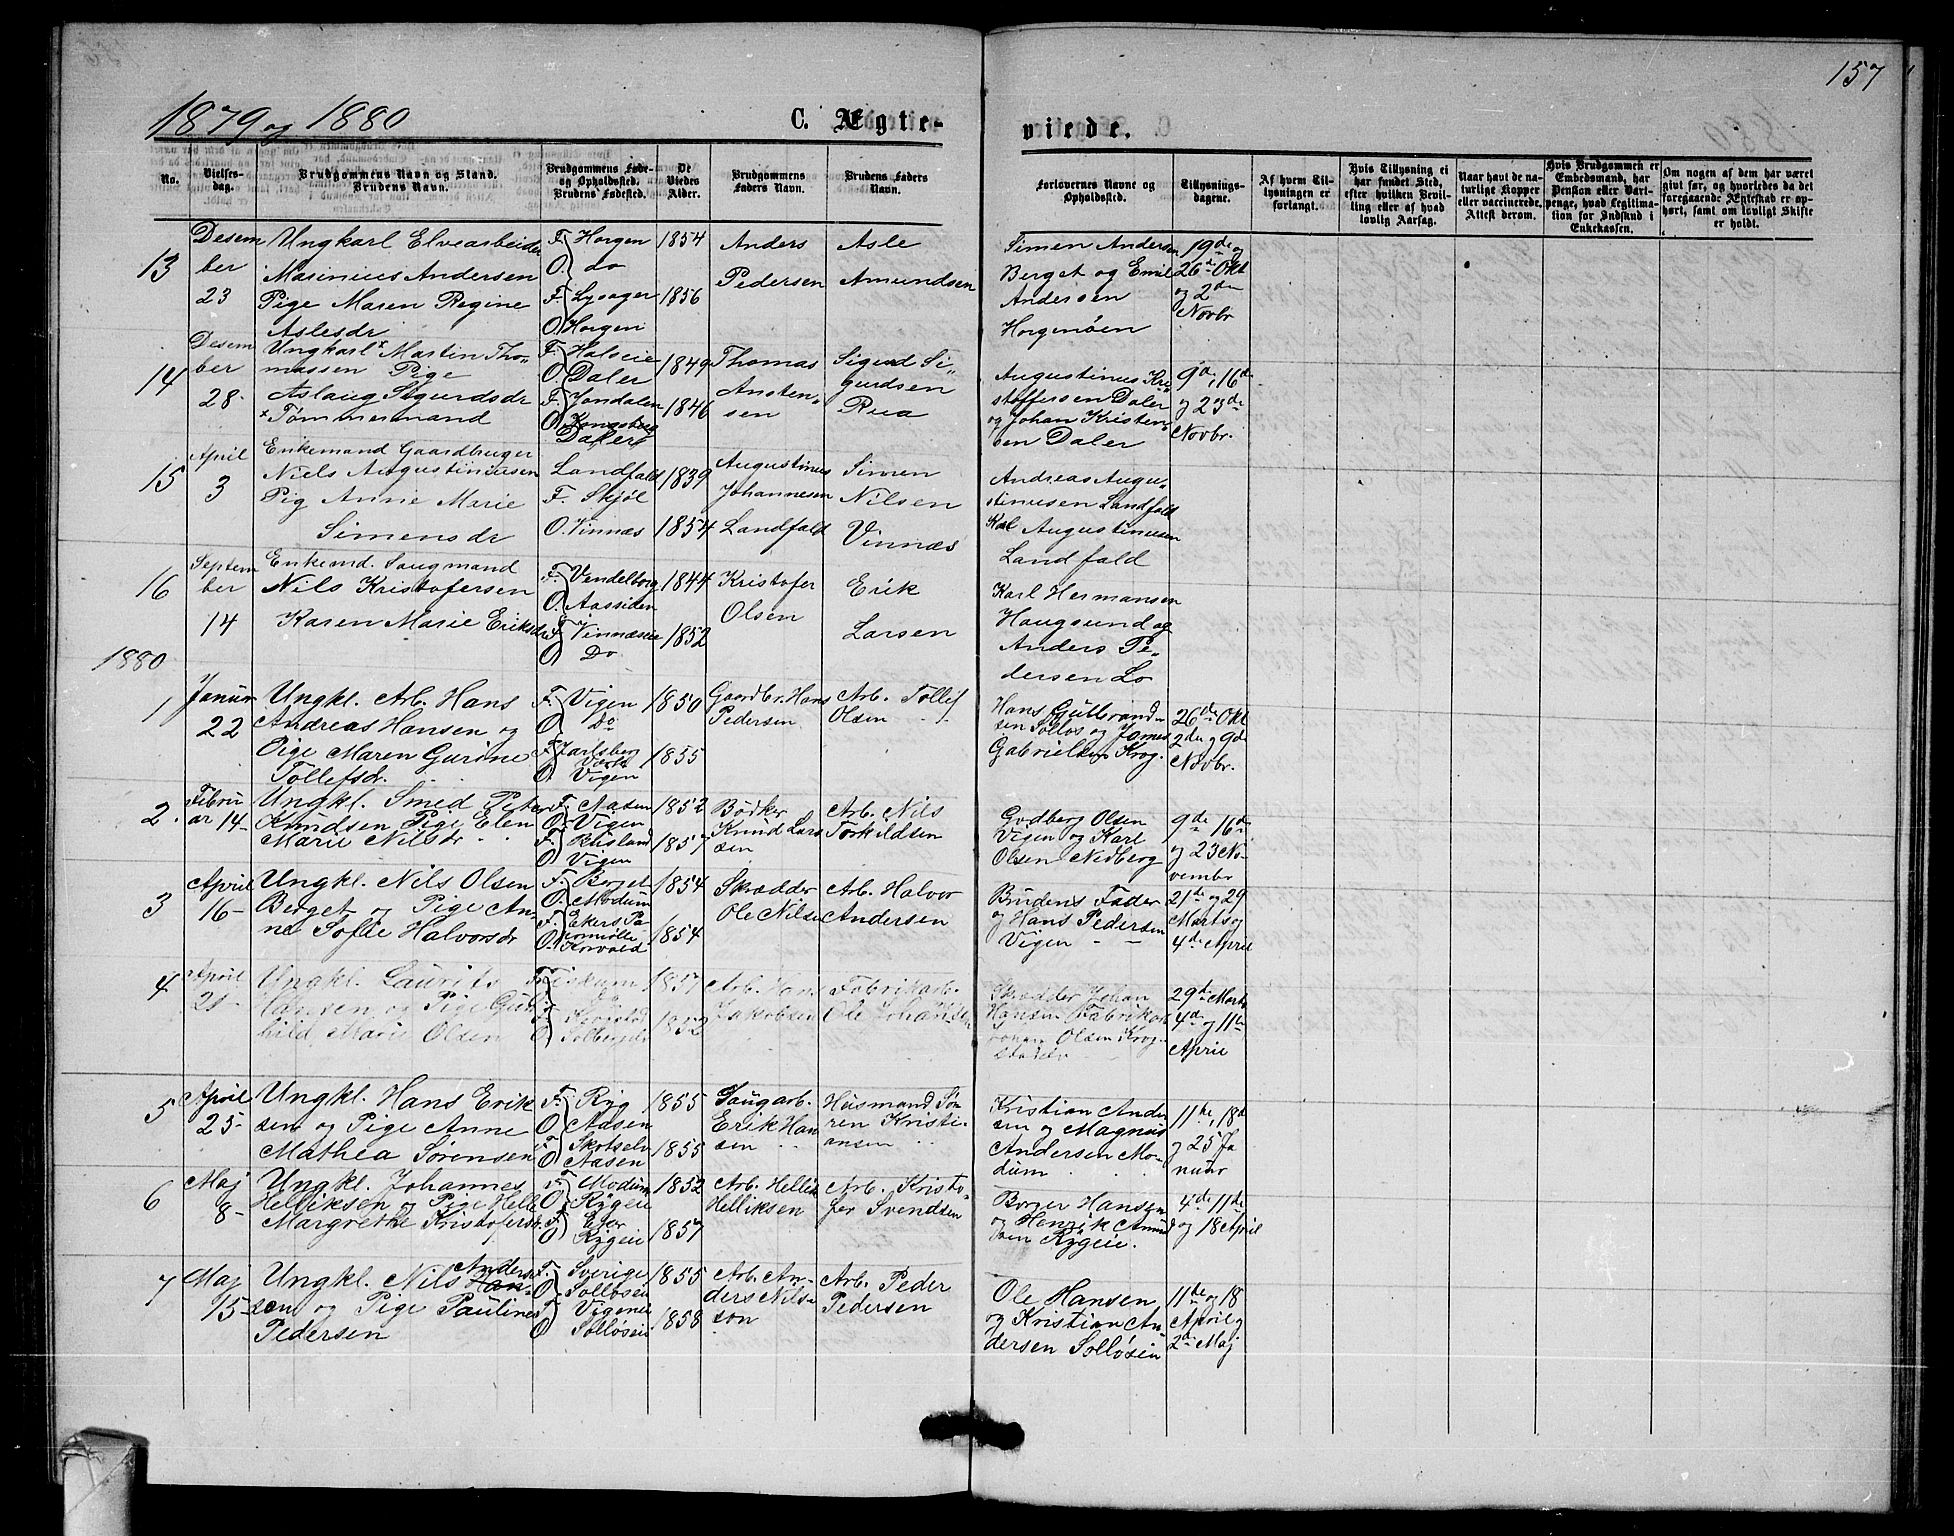 157
1879 og 1880
C. Ægte-
viede.
No.
Vielses-
dag.
Brudgommens Navn og Stand.
Brudens Navn.
Brudgommens Føde-
og Opholdssted.
Brudens Fødested.
De
Viedes
Alder.
Brudgommens
Faders Navn.
Brudens Faders
Navn.
Forlovernes Navne og
Opholdssted.
Tillysnings-
dagene.
Af hvem Til-
lysningen er
forlangt.
Hvis Tillysning ei
har fundet Sted,
efter hvilken Bevil-
ling eller af hvad
lovlig Aarsag.
Naar havt de na-
turlige Kopper
eller vaccinerede.
Attest derom.
Hvis Brudgommen er
Embedsmand, har
Pension eller Vart-
penge, hvad Legitima-
tion for Indskud i
Enkekassen.
Om nogen af dem har været
givt før, og hvorledes da det
foregaaende Ægteskab er op-
hørt, samt om lovligt Skifte
er holdt.
13
Desem
ber
23
Ungkarl Elvearbeider
Masinius Andersen
Pige Maren Regine
Aslesdr
F. Horgen
O. do
F. Lysager
O. Horgen
1854
1856
Anders
Pedersen
Asle
Amundsen
Simen Andersen
Berget og Emil
Andersen
Horgenöen
19de og
26de Okt
og 2den
Novbr
14
Desem
ber
28
Ungkarl x Martin Tho„
massen Pige
Aslaug Sigurdsdr
x Tømmermand
F. Halseie
O. Daler
F. Jondalen
O. Kongsberg
Daler
1849
1846
Thomas
Ansten„
sen
Sigurd Si„
gurdsen
Rua
Augustinus Kri
stoffersen Daler
og Johan Kristen
sen Daler
9de, 16de
og 23de
Novbr.
15
April
3
Enkemand Gaardbruger
Niels Augustinusen
Pig Anne Marie
Simensdr
Landfald
F. Skjöl
O. Vinnæs
1839
1854
Augustinus
Johannesen
Landfald
Simen
Nilsen
Vinnæs
Andreas Augu„
stinusen Landfald
Karl Augustinusen
Landfald
16
Septem
ber
14
Enkemd. Saugmand
Nils Kristofersen
Karen Marie Eriksdr
F. Vendelborg
O. Aassiden
F. Vinnæseie
O. Do
1844
1852
Kristofer
Olsen
Erik
Larsen
Karl Hermansen
Haugsund og
Anders Pe„
dersen Lo
1880
1
Januar
22
Ungkl. Arb. Hans
Andreas Hansen og
Pige Maren Gurine
Tollefsdr.
F. Vigen
O. Do
F. Jarlsberg
Værk
O. Vigen
1850
1855
Gaardbr. Hans
Pedersen
Arb. Tollef
Olsen
Hans Gulbrand-
sen Solløs og James
Gabrielsen Krog.
26de Okt
2den og 9de
Novbr.
2.
Februar
14
Ungkl. Smed Peter
Knudsen Pige Elen
Marie Nilsdr
F. Aasen
O. Vigen
F.
O. Vigen
1852
1857
Bödker
Knud Lars
sen
Arb. Nils
Torkildsen
Gudberg Olsen
Vigen og Karl
Olsen Nedberg
9de 16de
og 23 No-
vembr
3
April
16
Ungkl. Nils Olsen
Berget og Pige An-
ne Sofie Halvorsdr
F. Berget
O. Modum
F. Ekers Pa
permølle
O. Korvald
1854
1854
Skrædder
Ole Nilsen
Arb. Halvor
Andersen
Brudens Fader
og Hans Pedersen
Vigen
21de og 29
Marts og
4de April
4
April
21
Ungkl. Laurits
Hansen og Pige Gun
hild Marie Olsen
F. Fiskum
O. Do
F. Krogstad
O. Solbergelv
1857
1852
Arb. Hans
Jakobsen
Fabrikarb.
Ole Johansen
Skrædder Johan
Hansen Fabrikarb
Johan Olsen Krog-
stadelv
29de Marts
4de og 11te
April
5
April
25
Ungkl. Hans Erik
sen og Pige Anne
Mathea Sørensen
F. Ryg
O. Aasen
F. Skotselv
O. Aasen
1855
1855
Saugarb.
Erik Han
sen
Husmand Sø-
ren Kristi-
ansen
Kristian Ander
sen og Magnus
Andersen Mo-
dum
11te, 18de
og 25 Ja
nuar
6
Maj
8
Ungkl. Johannes
Helliksen og Pige Helle
Margrethe Kristofersdr.
F. Modum
O. Rygeie
F. Eger
O. Rygeie
1852
1857
Arb. Hellik
Helliksen
Arb. Kristo-
fer Svendsen
Borger Hansen
og Henrik Amund
sen Rygeie.
4de 11te
og 18 April
7
Maj
15
Ungkl. Nils Anders
Han-
sen og Pige Pauline
Pedersen
F. Sverige
O. Solløseie
F. Vigeneie
O. Solløseie
1855
1858
Arb. An-
ders Nils-
son
Arb. Peder
Pedersen
Ole Hansen
og Kristian An
dersen Solløseie
11te og 18
April og
2den Maj